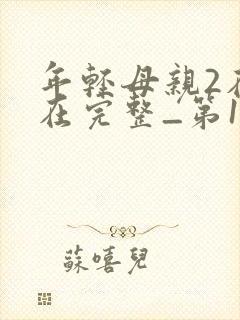 年輕母親2在
在完整_第1
蘇嘻兒